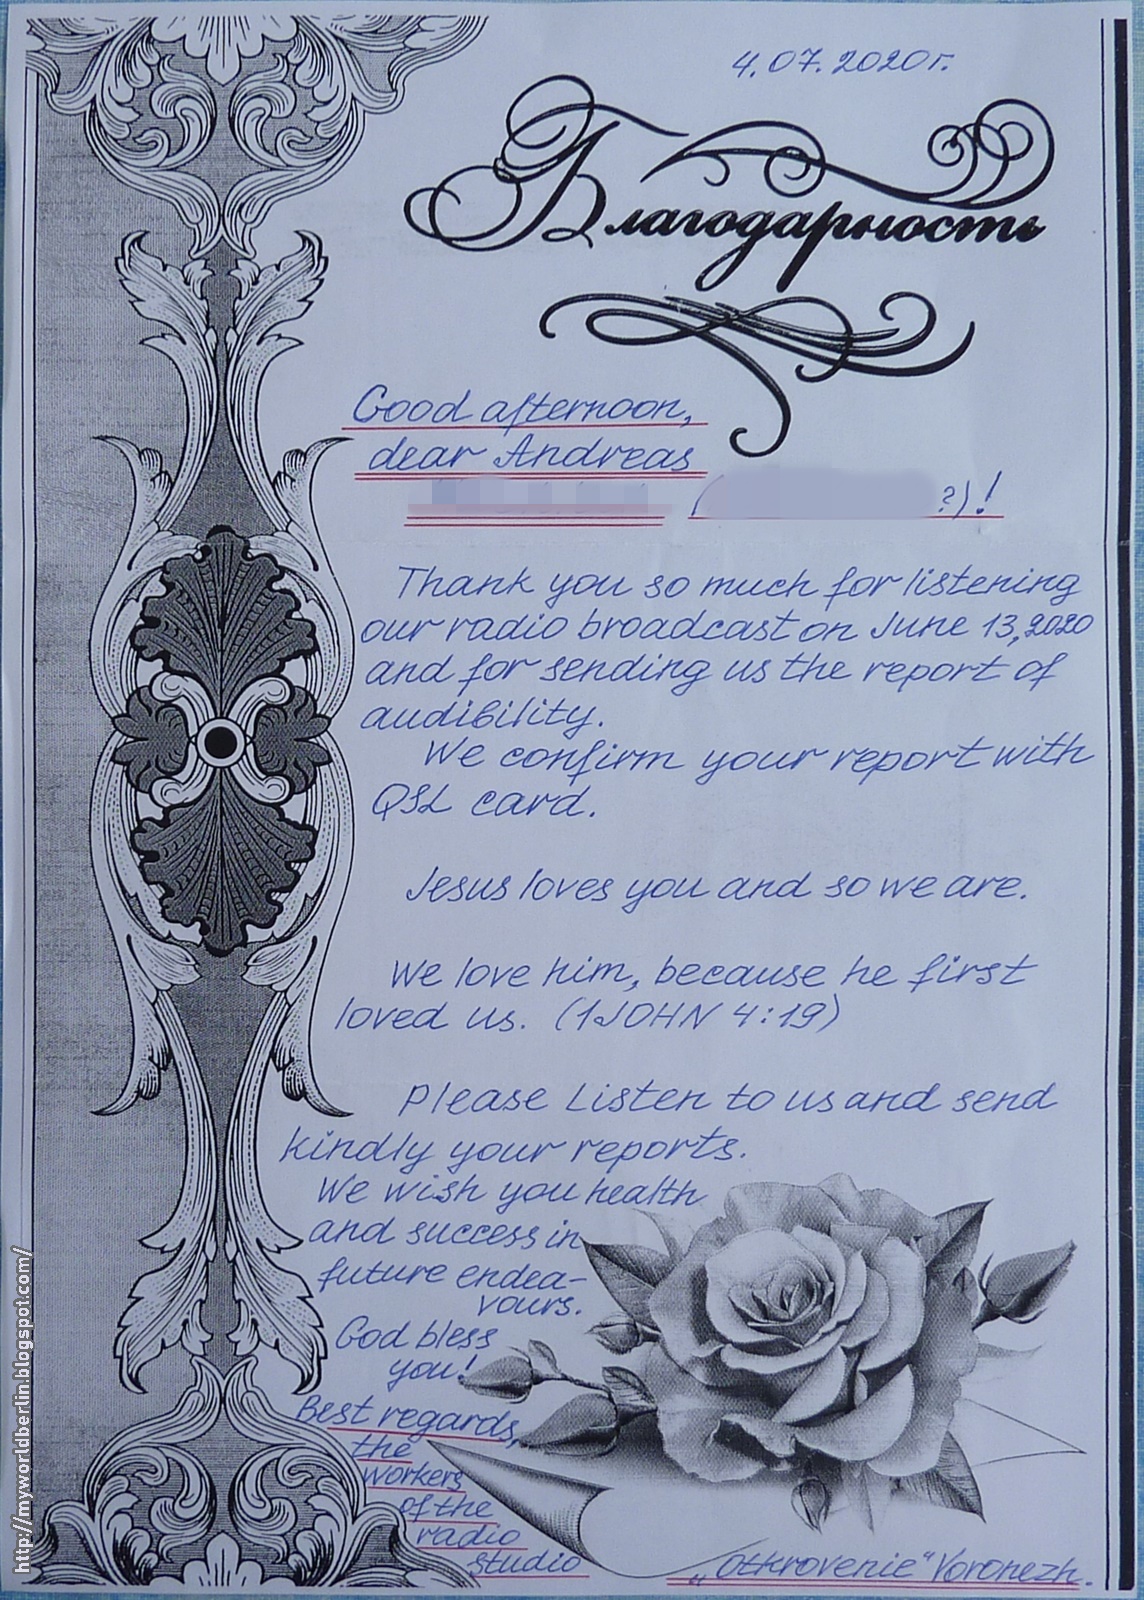 4.07.2020г.
Благодарность
Good afternoon,
dear Andreas
( ?)!
Thank you so much for listening
our radio broadcast on June 13, 2020
and for sending us the report of
audibility.
We confirm your report with
QSL card.
Jesus loves you and so we are.
We love him, because he first
loved us. (1JOHN 4:19)
Please Listen to us and send
kindly your reports.
We wish you health
and success in
future endea-
vours.
God bless
you!
Best regards,
the
workers
of the
radio
studio
„Otkrovenie“ Voronezh.
http://myworldberlin.blogspot.com/